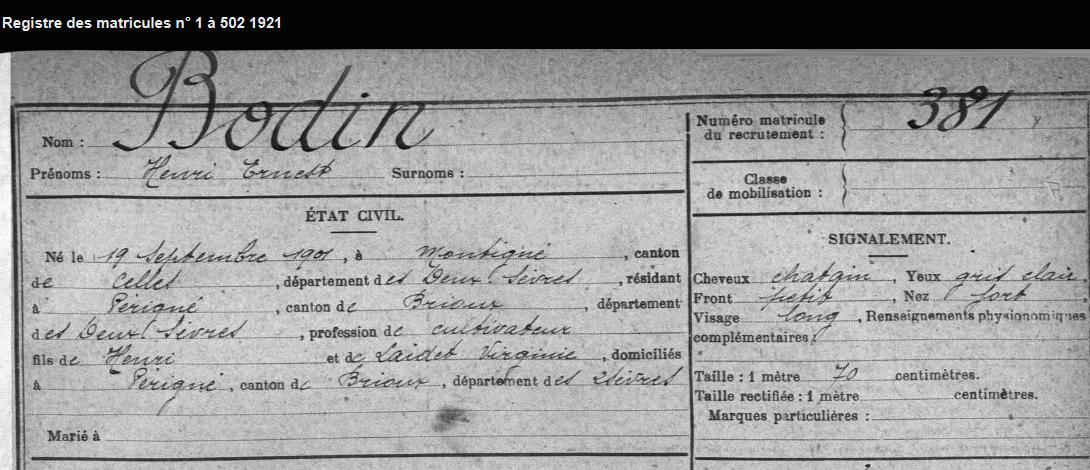 Registre des matricules n° 1 à 502 1921
Nom : Bodin
Prénoms : Henri Ernest Surnoms :
Numéro matricule du recrutement : 381
Classe de mobilisation :
ÉTAT CIVIL.
Né le 19 Septembre 1901, à Montigné, canton
de Celles, département des Deux Sèvres, résidant
à Périgné, canton de Brioux, département
des Deux Sèvres, profession de cultivateur
fils de Henri et de Laidet Virginie, domiciliés
à Périgné, canton de Brioux, département des 2 Sèvres
Marié à
SIGNALEMENT.
Cheveux chatain, Yeux gris clair
Front petit, Nez fort
Visage long, Renseignements physionomiques
complémentaires :
Taille : 1 mètre 70 centimètres.
Taille rectifiée : 1 mètre centimètres.
Marques particulières :